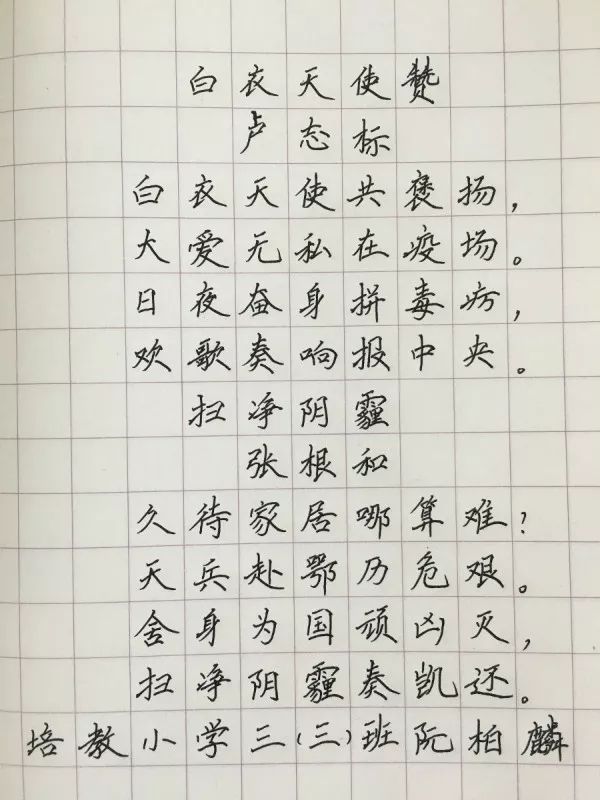 白衣天使赞
卢志标
白衣天使共褒扬，
大爱无私在疫场。
日夜奋身拼毒疠，
欢歌奏响报中央。
扫净阴霾
张根和
久待家居哪算难？
天兵赴鄂历危艰。
舍身为国顽凶灭，
扫净阴霾奏凯还。
培教小学三（三）班阮柏麟